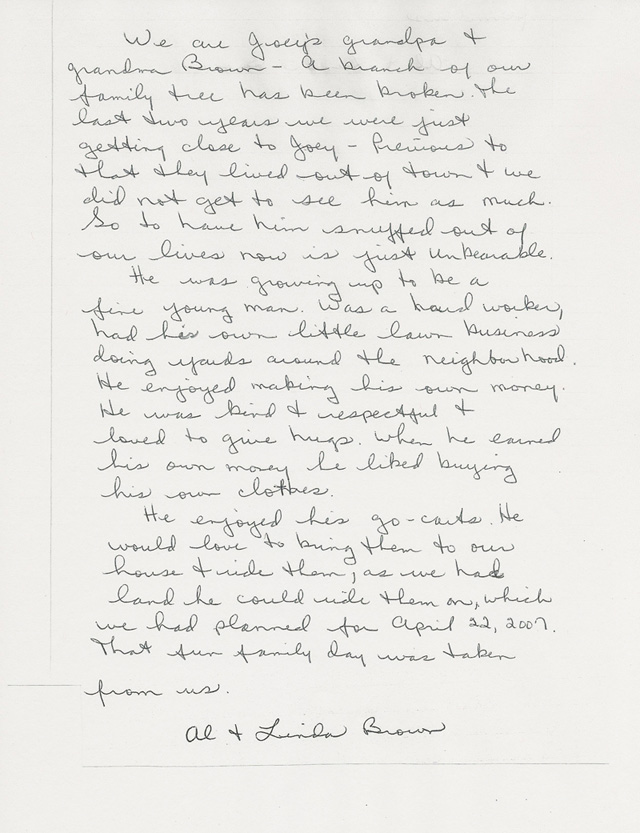 We are Joey's grandpa &
grandma Brown - A branch of our
family tree has been broken. The
last two years we were just
getting close to Joey - Previous to
that they lived out of town & we
did not get to see him as much.
So to have him snuffed out of
our lives now is just unbearable.
He was growing up to be a
fine young man. Was a hard worker,
had his own little lawn business
doing yards around the neighborhood.
He enjoyed making his own money.
He was kind & respectful &
loved to give hugs. When he earned
his own money he liked buying
his own clothes.
He enjoyed his go-carts. He
would love to bring them to our
house & ride them, as we had
land he could ride them on, which
we had planned for April 22, 2007.
That fun family day was taken
from us.
Al & Linda Brown